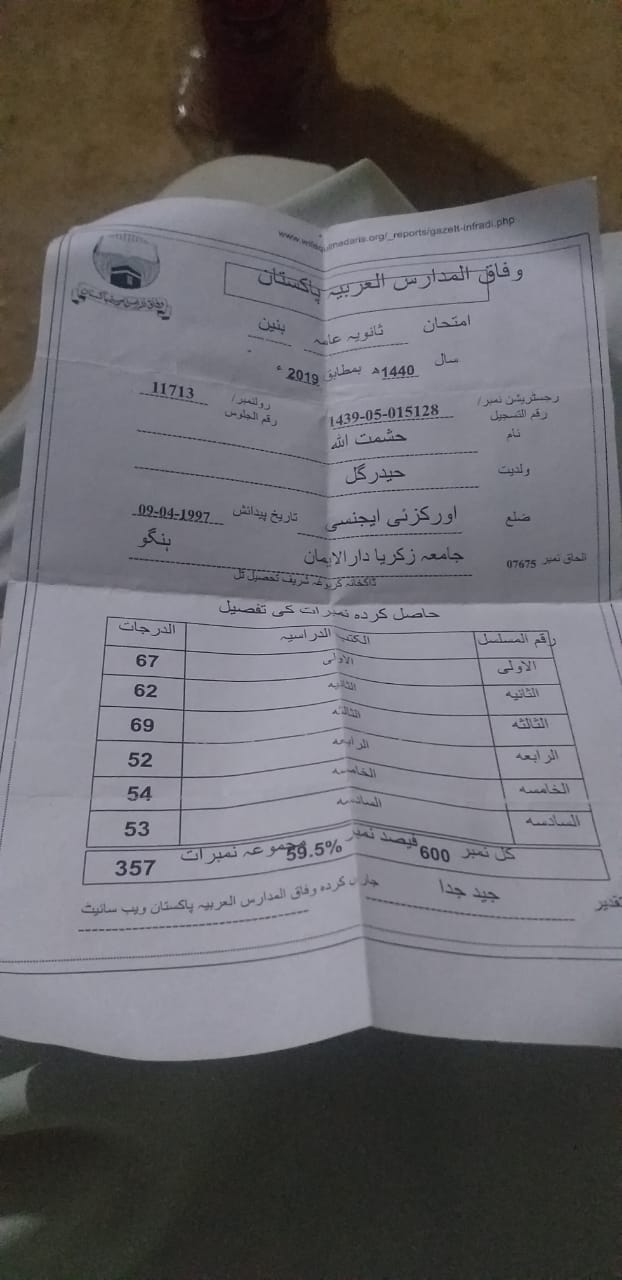 www.wifaqulmadaris.org/_reports/gazett-infradi.php
وفاق المدارس العربیہ پاکستان
وفاق المدارس العربیہ پاکستان
امتحان ثانویہ عامہ بنین
سال 1440ھ بمطابق 2019ء
رجسٹریشن نمبر/ رقم التسجیل 1439-05-015128 رولنمبر/ رقم الجلوس 11713
نام حشمت اللہ
ولدیت حیدرگل
ضلع اورکزئی ایجنسی تاریخ پیدائش 09-04-1997
الحاق نمبر 07675 جامعہ زکریا دارالایمان ہنگو
ڈاکخانہ کربوغہ شریف تحصیل ٹل
حاصل کردہ نمبرات کی تفصیل
رقم المسلسل الکتب الدراسیہ الدرجات
الاولی الاولی 67
الثانیہ الثانیہ 62
الثالثہ الثالثہ 69
الرابعہ الرابعہ 52
الخامسہ الخامسہ 54
السادسہ السادسہ 53
کل نمبر 600 فیصد نمبر 59.5% مجموعہ نمبرات 357
تقدیر جید جدا جاری کردہ وفاق المدارس العربیہ پاکستان ویب سائیٹ